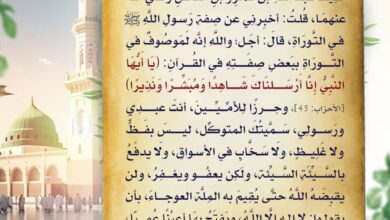 عنهما، قلت: أخبرني عن صفة رسول الله ﷺ
في التوراة، قال: أجل؛ والله إنه لموصوف في
التوراة ببعض صفته في القرآن: (يا أيها
النبي إنا أرسلناك شاهدا ومبشرا ونذيرا)
[الأحزاب: 45]، وحرزا للأميين، أنت عبدي
ورسولي، سميتك المتوكل، ليس بفظ
ولا غليظ، ولا سخاب في الأسواق، ولا يدفع
بالسيئة السيئة، ولكن يعفو ويغفر، ولن
يقبضه الله حتى يقيم به الملة العوجاء، بأن
يقولوا: لا إله إلا الله، ويفتح بها أعينا عميا،